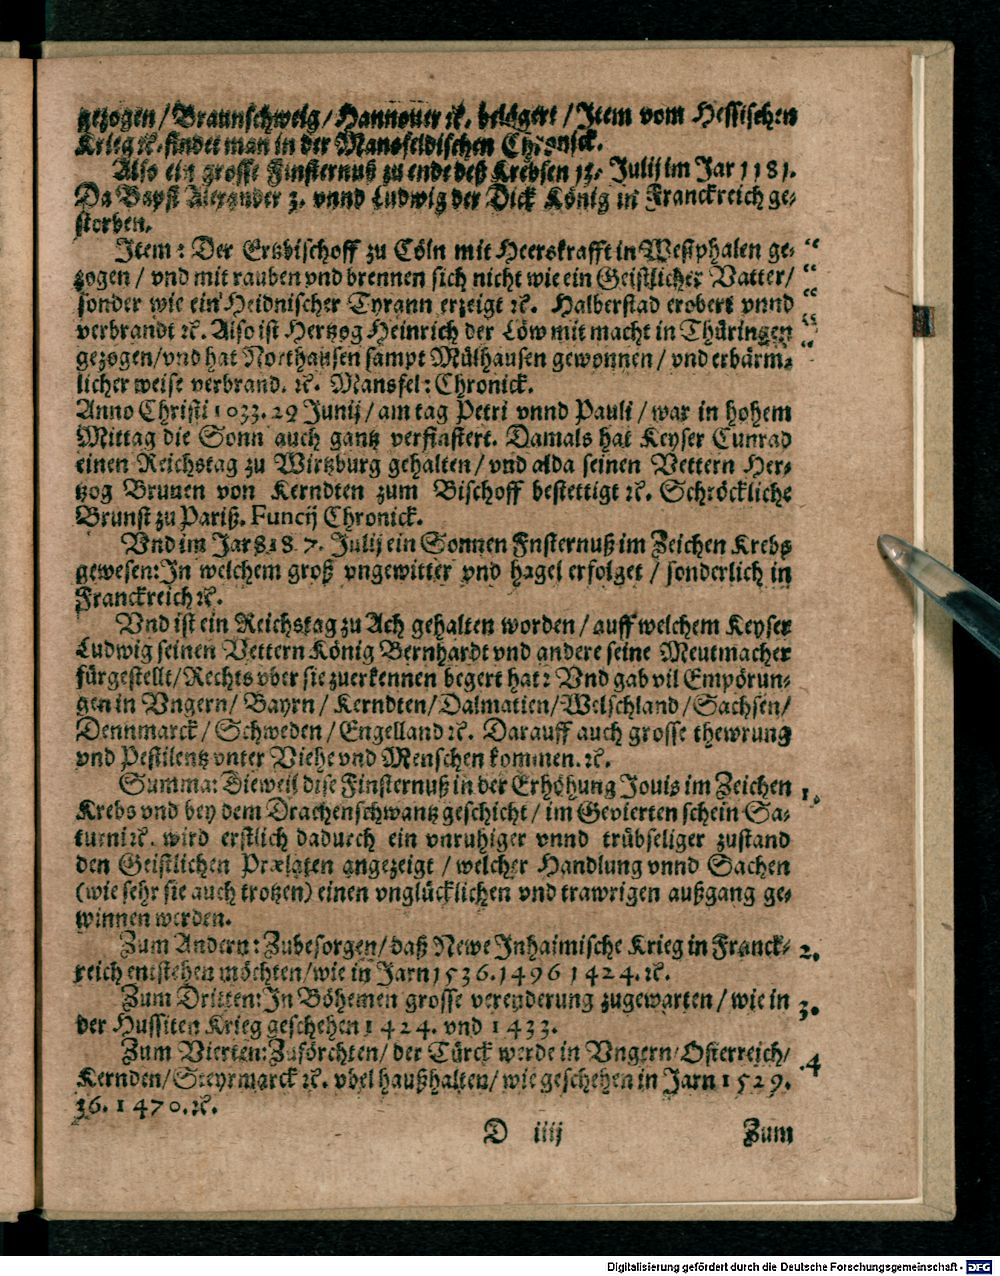 gezogen / Braunschweig / Hannouer ꝛc. belägert / Item vom Hessischen
Krieg ꝛc. findet man in der Mansfeldischen Chronick.
Also ein grosse Finsternuß zu ende deß Krebsen 13. Julij im Jar 1181.
Da Bapst Alexander 3. vnnd Ludwig der Dick König in Franckreich ge-
storben.
Item : Der Ertzbischoff zu Cöln mit Heerskrafft in Westphalen ge-
zogen / vnd mit rauben vnd brennen sich nicht wie ein Geistlicher Vatter /
sonder wie ein Heidnischer Tyrann erzeigt ꝛc. Halberstad erobert vnnd
verbrandt ꝛc. Also ist Hertzog Heinrich der Löw mit macht in Thüringen
gezogen / vnd hat Northausen sampt Mülhausen gewonnen / vnd erbärm-
licher weise verbrand. ꝛc. Mansfel : Chronick.
Anno Christi 1033. 29 Junij / am tag Petri vnnd Pauli / war in hohem
Mittag die Sonn auch gantz verfinstert. Damals hat Keyser Cunrad
einen Reichstag zu Wirtzburg gehalten / vnd alda seinen Vettern Her-
tzog Brunen von Kerndten zum Bischoff bestettigt ꝛc. Schröckliche
Brunst zu Pariß. Funcij Chronick.
Vnd im Jar 818 7. Julij ein Sonnen Fnsternuß im Zeichen Krebs
gewesen: In welchem groß vngewitter vnd hagel erfolget / sonderlich in
Franckreich ꝛc.
Vnd ist ein Reichstag zu Ach gehalten worden / auff welchem Keyser
Ludwig seinen Vettern König Bernhardt vnd andere seine Meutmacher
fürgestellt / Rechts vber sie zuerkennen begert hat: Vnd gab vil Empörun-
gen in Vngern / Bayrn / Kerndten / Dalmatien / Welschland / Sachsen /
Dennmarck / Schweden / Engelland ꝛc. Darauff auch grosse thewrung
vnd Pestilentz vnter Viehe vnd Menschen kommen. ꝛc.
Summa: Dieweil dise Finsternuß in der Erhöhung Jouis im Zeichen 1.
Krebs vnd bey dem Drachenschwantz geschicht / im Gevierten schein Sa-
turni ꝛc. wird erstlich dadurch ein vnruhiger vnnd trübseliger zustand
den Geistlichen Prælaten angezeigt / welcher Handlung vnnd Sachen
(wie sehr sie auch trotzen) einen vnglücklichen vnd trawrigen außgang ge-
winnen werden.
Zum Andern: Zubesorgen / daß Newe Inhaimische Krieg in Franck- 2.
reich entstehen möchten / wie in Jarn 1536. 1496 1424. ꝛc.
Zum Dritten: In Böhemen grosse verenderung zugewarten / wie in 3.
der Hussiten Krieg geschehen 1424. vnd 1433.
Zum Vierten: Zuförchten / der Türck werde in Vngern / Osterreich / .4
Kernden / Steyrmarck ꝛc. vbel haußhalten / wie geschehen in Jarn 1529.
36. 1470. ꝛc.
D iiij Zum
Digitalisierung gefördert durch die Deutsche Forschungsgemeinschaft - DFG